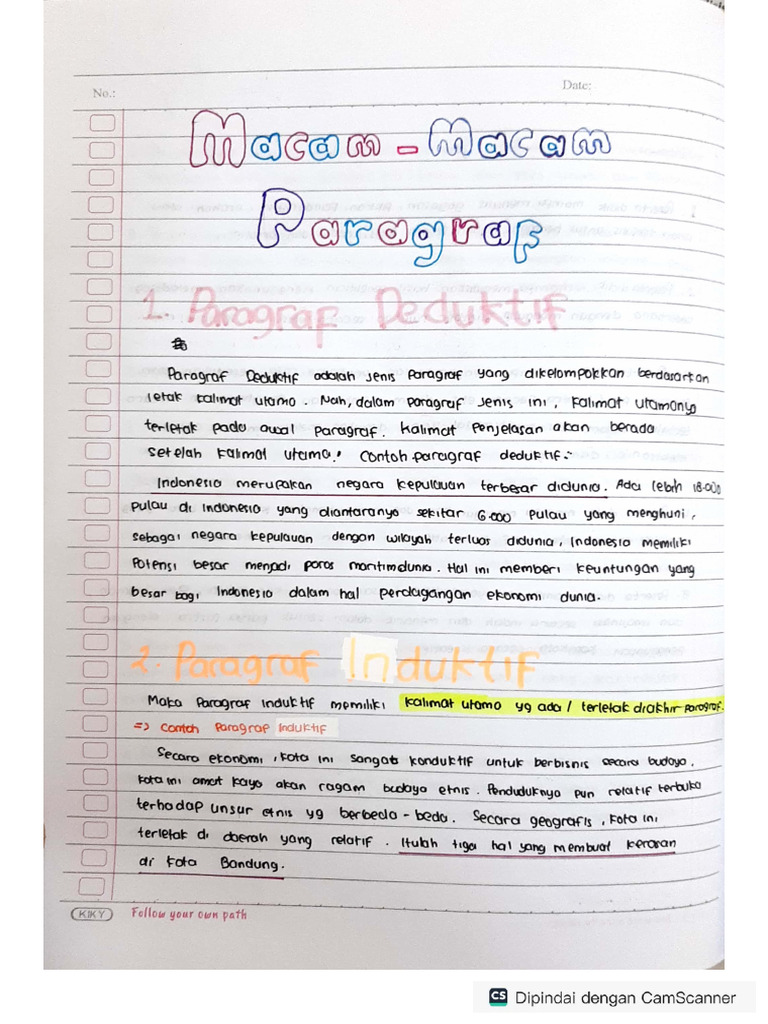 No.:
Date:
Macam - Macam
Paragraf
1. Paragraf Deduktif
Paragraf Deduktif adalah jenis Paragraf yang dikelompokkan berdasarkan
letak kalimat utama. Nah, dalam paragraf jenis ini, kalimat utamanya
terletak pada awal paragraf. kalimat Penjelasan akan berada
setelah kalimat utama. Contoh paragraf deduktif :
Indonesia merupakan negara kepulauan terbesar didunia. Ada lebih 18.000
pulau di Indonesia yang diantaranya sekitar 6.000 pulau yang menghuni,
sebagai negara kepulauan dengan wilayah terluas didunia, Indonesia memiliki
Potensi besar menjadi poros maritim dunia. Hal ini memberi keuntungan yang
besar bagi Indonesia dalam hal perdagangan ekonomi dunia.
2. Paragraf Induktif
Maka Paragraf induktif memiliki kalimat utama yg ada / terletak diakhir paragraf.
=> Contoh Paragraf Induktif
Secara ekonomi, kota ini sangat konduktif untuk berbisnis secara budaya,
kota ini amat kaya akan ragam budaya etnis. Penduduknya pun relatif terbuka
terhadap unsur etnis yg berbeda - beda. Secara geografis, kota ini
terletak di daerah yang relatif. Itulah tiga hal yang membuat kerasan
di kota Bandung.
KIKY
Follow your own path
CS Dipindai dengan CamScanner